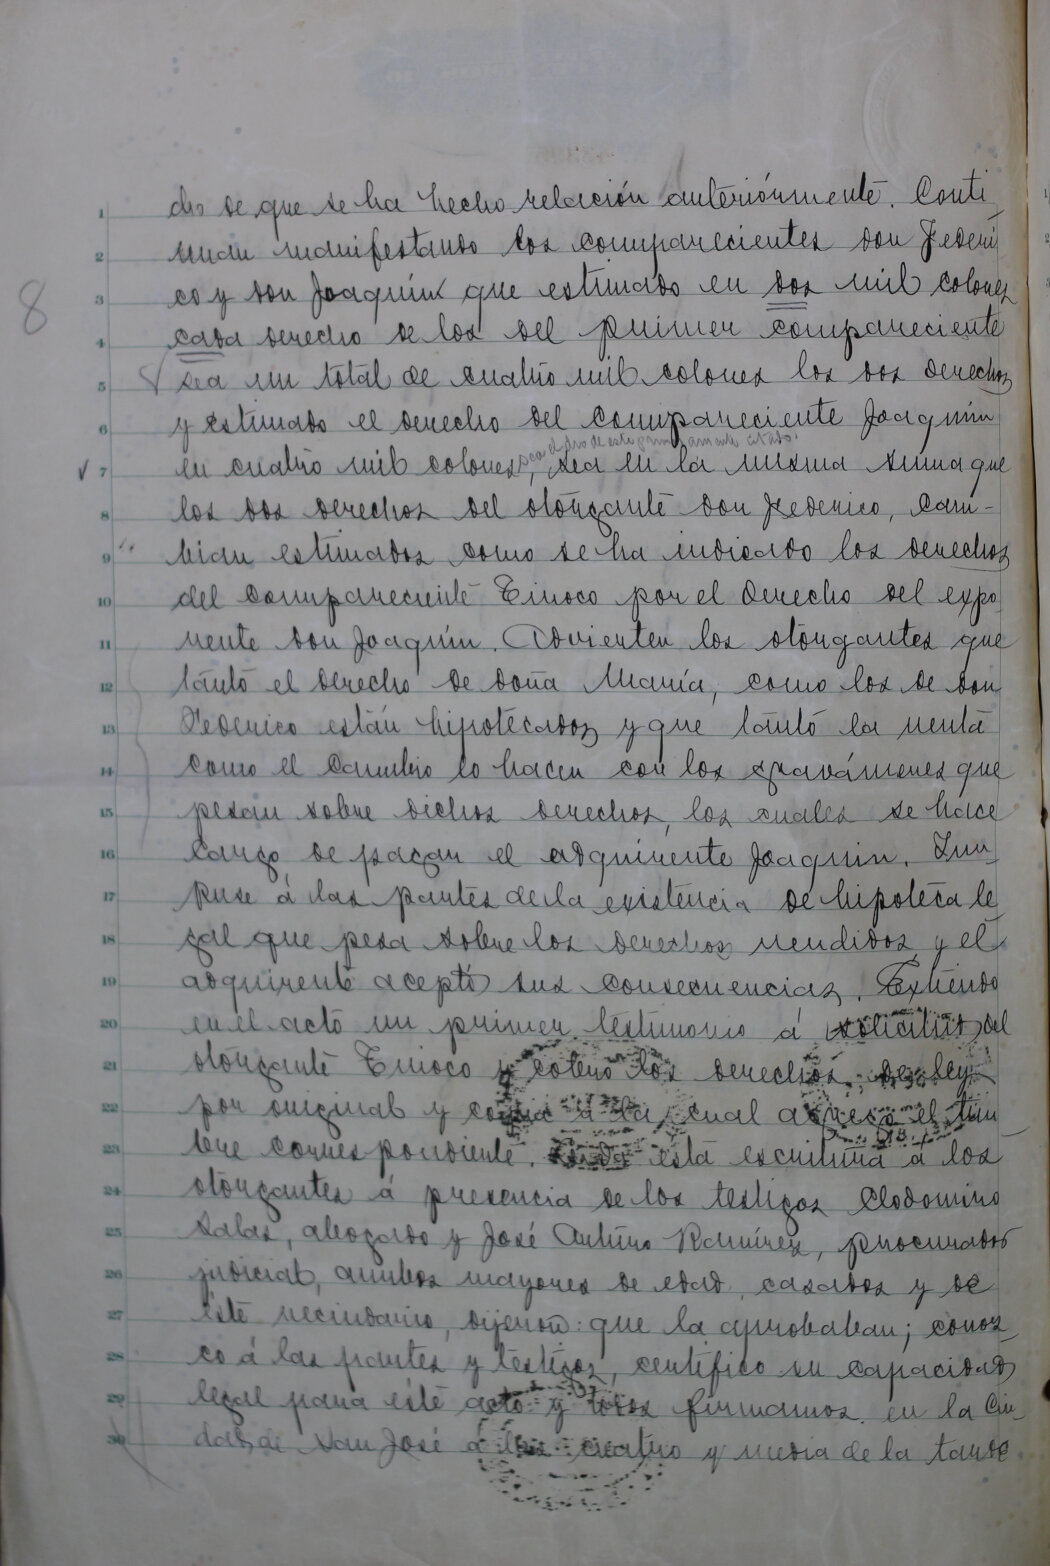 8
1 dio de que se ha hecho relación anteriórmente. Conti
2 nuan manifestando los comparecientes don Federi
3 co y don Joaquín que estimado en dos mil colones
4 cada derecho de los del primer compareciente
5 sea un total de cuatro mil colones los dos derechos
6 y estimado el derecho del compareciente Joaquín
7 en cuatro mil colones, sea en la misma suma que
8 los dos derechos del otorgante don Federico, cam-
9 bian estimados como se ha indicado los derechos
10 del compareciente Tinoco por el derecho del expo
11 nente don Joaquín. Advierten los otorgantes que
12 tanto el derecho de doña María, como los de don
13 Federico están hipotecados y que tanto la venta
14 como el cambio lo hacen con los gravámenes que
15 pesan sobre dichos derechos, los cuales se hace
16 cargo de pagar el adquirente Joaquin. Im-
17 puse á las partes de la existencia de hipoteca le
18 gal que pesa sobre los derechos vendidos y el
19 adquirente aceptó sus consecuencias. Extiendo
20 en el acto un primer testimonio á solicitud del
21 otorgante Tinoco y los derechos de ley
22 por original y copia á la cual agrego el tim
23 bre correspondiente. Leída esta escritura á los
24 otorgantes á presencia de los testigos Clodomiro
25 Salas, abogado y José Arturo Ramírez, procurador
26 judicial, ambos mayores de edad, casados y de
27 este vecindario, dijeron: que la aprobaban; conoz
28 co á las partes y testigos, certifico su capacidad
29 legal para este acto y todos firmamos en la Ciu-
30 dad de San José á las cuatro y media de la tarde